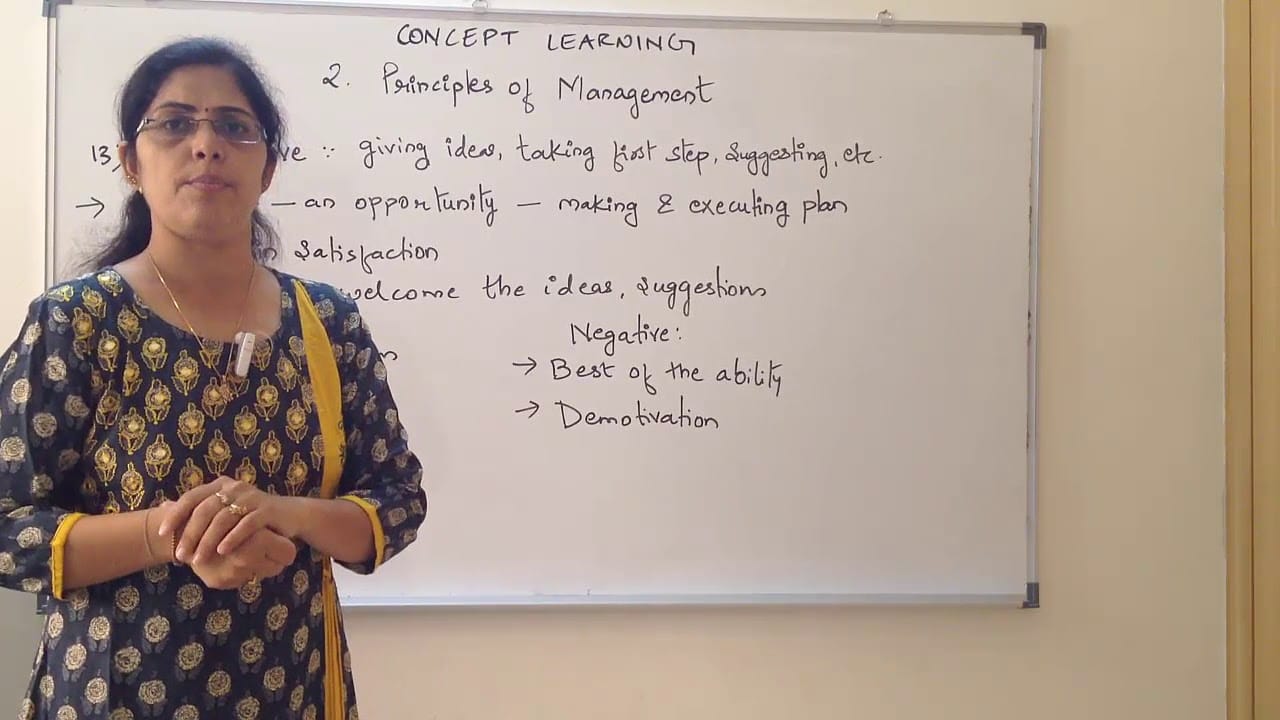 CONCEPT LEARNING
2. Principles of Management
13, ve :- giving ideas, taking first step, suggesting, etc.
→ — an opportunity — making & executing plan
in satisfaction
welcome the ideas, suggestions
Negative:
→ Best of the ability
→ Demotivation